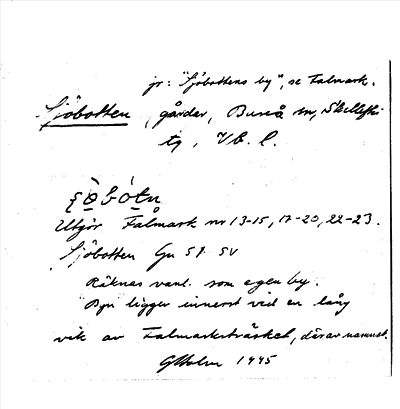 jr: "Sjöbottens by", se Falmark.
Sjöbotten, gårdar, Bureå sn, Skellefte
tg, Vb. l.
Utgör Falmark nr 13-15, 17-20, 22-23.
Sjöbotten Gu 5f SV
Räknas vanl. som egen by.
Byn ligger innerst vid en lång
vik av Falmarksträsket, därav namnet.
GHolm 1945